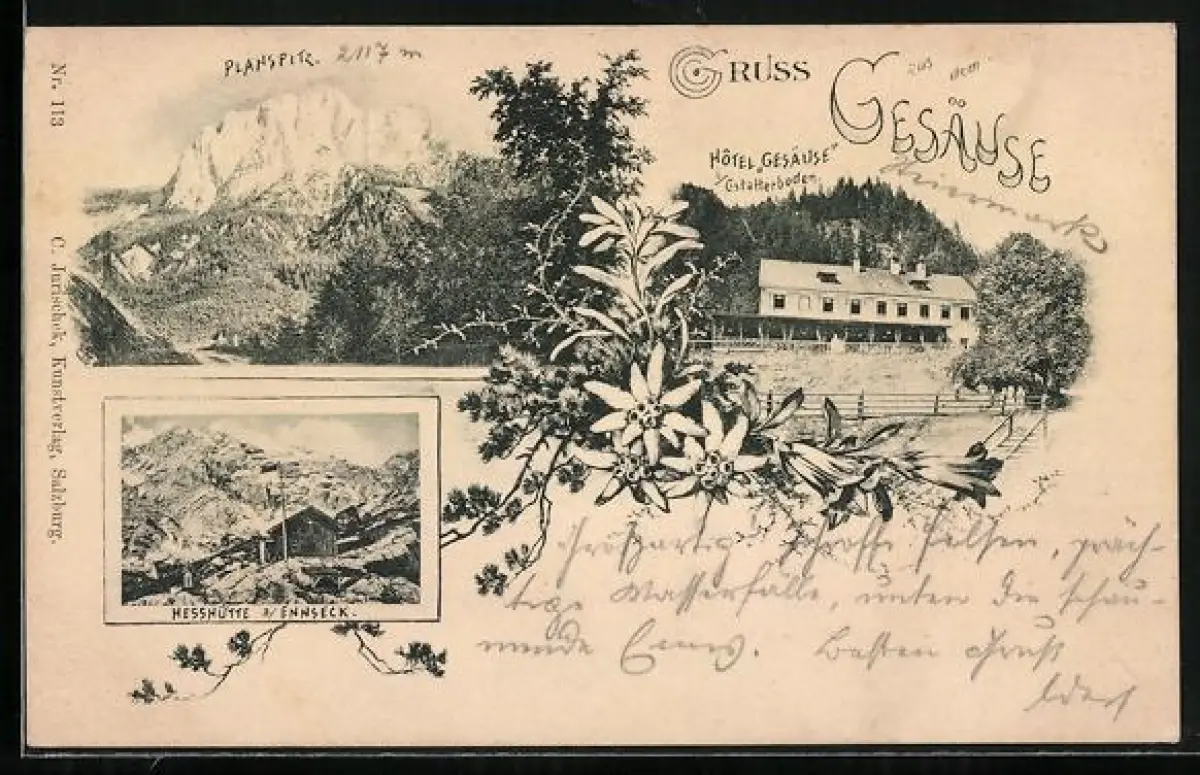 PLANSPITZ. 2117 m
GRUSS aus dem
GESÄUSE
Steiermark
HÔTEL „GESÄUSE"
i/ Gstatterboden.
Nr. 113 C. Jurischek, Kunstverlag, Salzburg.
HESSHÜTTE a/ ENNSECK.
Großartig! schroffe Felsen, präch-
tige Wasserfälle, unten die schäu-
mende Enns. Besten Gruß